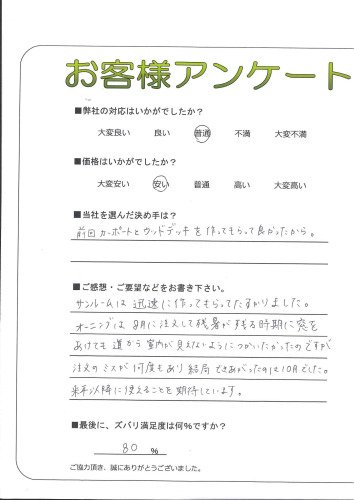 お客様アンケート
■弊社の対応はいかがでしたか？
大変良い 良い 普通 不満 大変不満
■価格はいかがでしたか？
大変安い 安い 普通 高い 大変高い
■当社を選んだ決め手は？
前回カーポートとウッドデッキを作ってもらって良かったから。
■ご感想・ご要望などをお書き下さい。
サンルームは迅速に作ってもらってたすかりました。
オーニングは8月に注文して残暑が残る時期に窓を
あけても道から室内が見えないようにつかいたかったのですが
注文のミスが何度もあり結局できあがったのは10月でした。
来年以降に使えることを期待しています。
■最後に、ズバリ満足度は何％ですか？
80 ％
ご協力頂き、誠にありがとうございました。